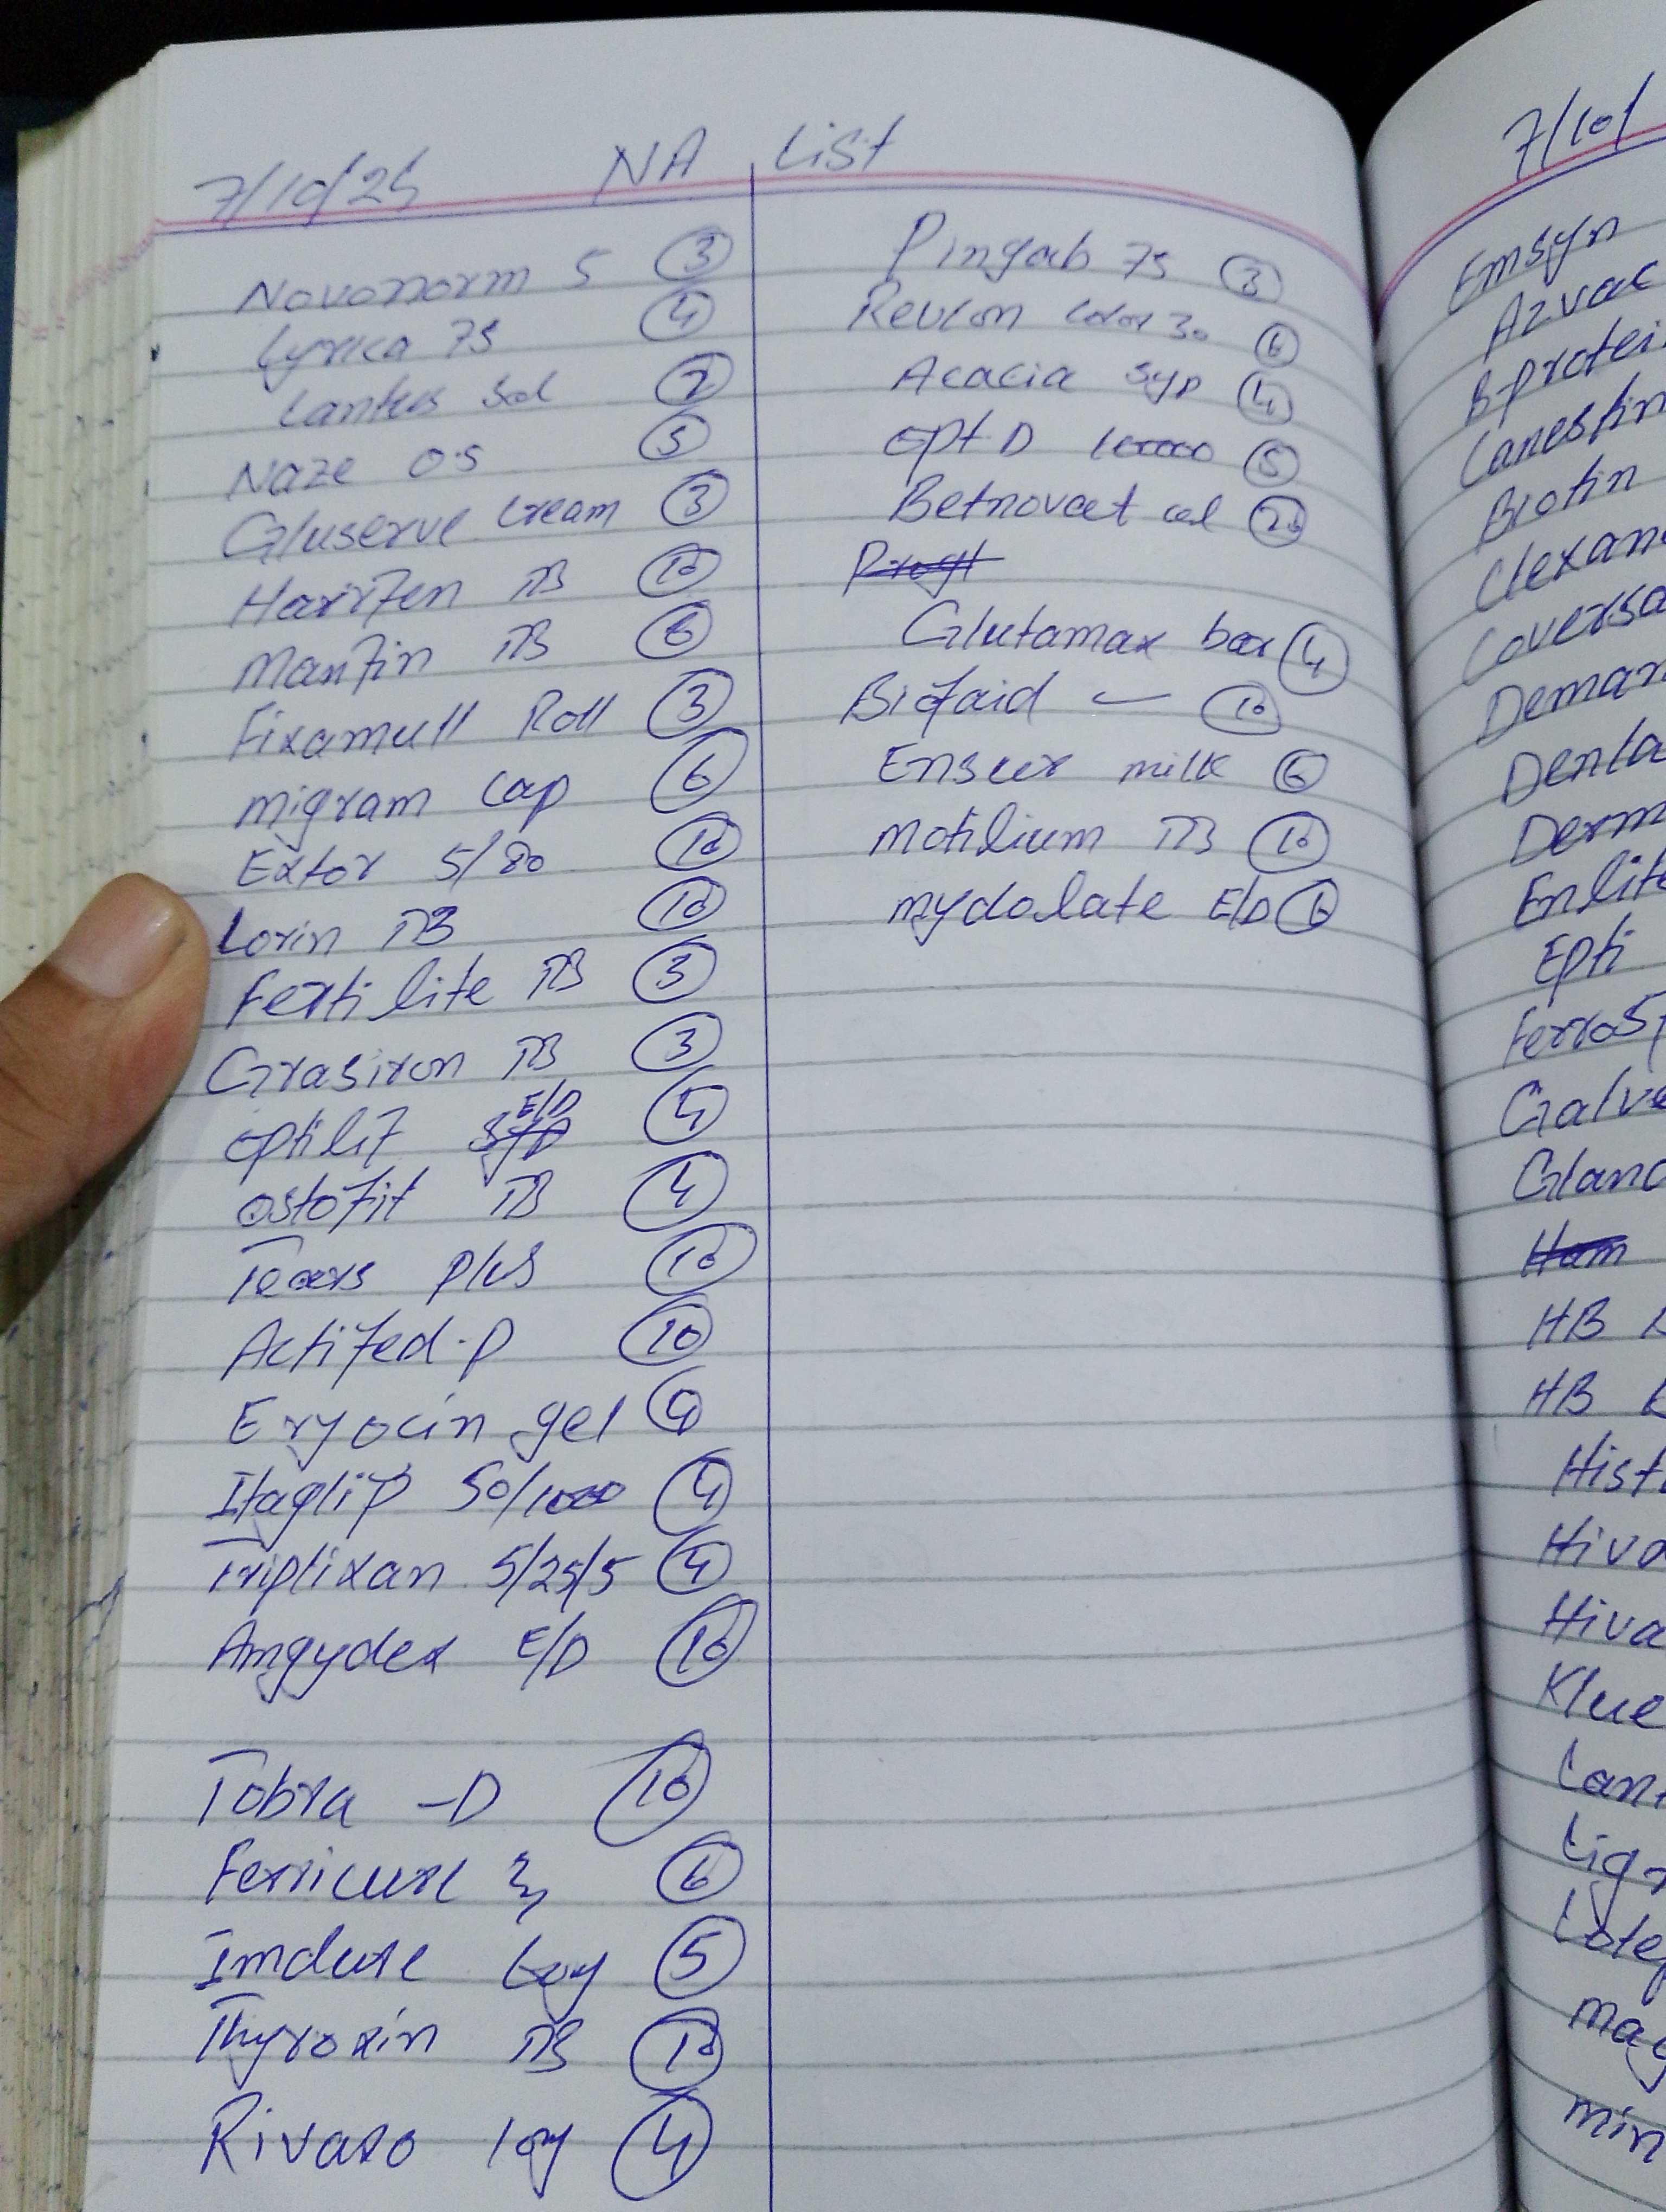 7/10/25 NA List
Novonorm 5 3
Lyrica 75 4
Lantus Sol 2
Naze OS 5
Gluserve Cream 3
Harifen TB 10
Manfin TB 6
Fixamull Roll 3
migram Cap 6
Extor 5/80 10
Lorin TB 10
Fertilite TB 3
Grasiron TB 3
optilif E/D
ostofit TB 4
Tears plus 10
Actifed-P 10
Eryocin gel 4
Itaglip 50/1000 4
Triplixan 5/25/5 4
Amgydex E/D 10
Tobra -D 10
Ferricure 6
Imdure 5
Thyroxin TB 10
Rivaro 10g 4
Pingab 75 3
Revlon Color 30 6
Acacia Syp 4
opt-D 5
Betnovat 20
Glutamax bar 4
Biofaid 10
Ensur milk 6
motilium TB 10
mydolate E/D 6
7/10/
Emsyn
Azvac
B-protei
Canestin
Biotin
Clexan
Coversa
Demar
Denta
Derm
Enlite
Epti
Ferros
Galv
Glan
HB
HB
Hist
Hiva
Hiva
Klue
Lan
Lig
Lote
mag
min